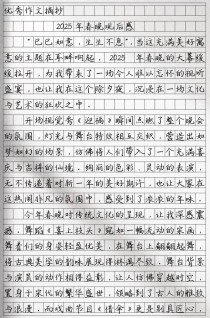 优秀作文摘抄
2025年春晚观后感
“巳巳如意，生生不息”，当这充满美好寓
意的主题在耳畔响起，2025年春晚的大幕缓
缓拉开，为我带来了一场令人难以忘怀的视听
盛宴，也让我在这个除夕夜，沉浸在一场文化
与艺术的狂欢之中。
开场视觉秀《迎福》瞬间点燃了整个晚会
的氛围，灯光与舞台特效相互交织，营造出如
梦如幻的场景，仿佛将人们带入了一个充满喜
庆与吉祥的仙境。绚丽的色彩、灵动的表演，
无不传递着对新一年的美好期许，也让大家在
这热闹非凡的氛围中，感受到了浓浓的年味。
今年春晚对传统文化的呈现，让我深感震
撼。舞蹈《喜上枝头》宛如一幅流动的宋画，
舞者们的身姿轻盈优美，在舞台上翩翩起舞，
将古典美学的韵味展现得淋漓尽致。舞台背景
与演员的动作相得益彰，让人仿佛穿越时空，
置身于宋代的繁华盛世，领略到了古人的雅致
与浪漫。而戏曲节目《借伞》更是别具匠心，